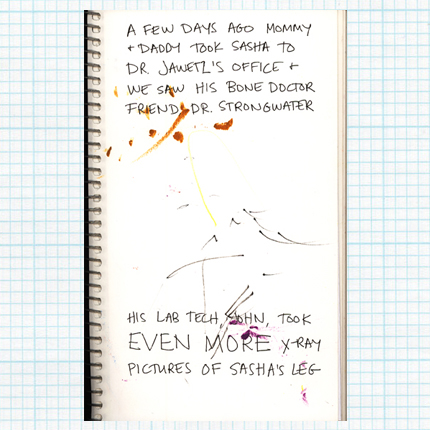 A FEW DAYS AGO MOMMY
+ DADDY TOOK SASHA TO
DR. JAWETZ'S OFFICE +
WE SAW HIS BONE DOCTOR
FRIEND DR. STRONGWATER
HIS LAB TECH, JOHN, TOOK
EVEN MORE X-RAY
PICTURES OF SASHA'S LEG